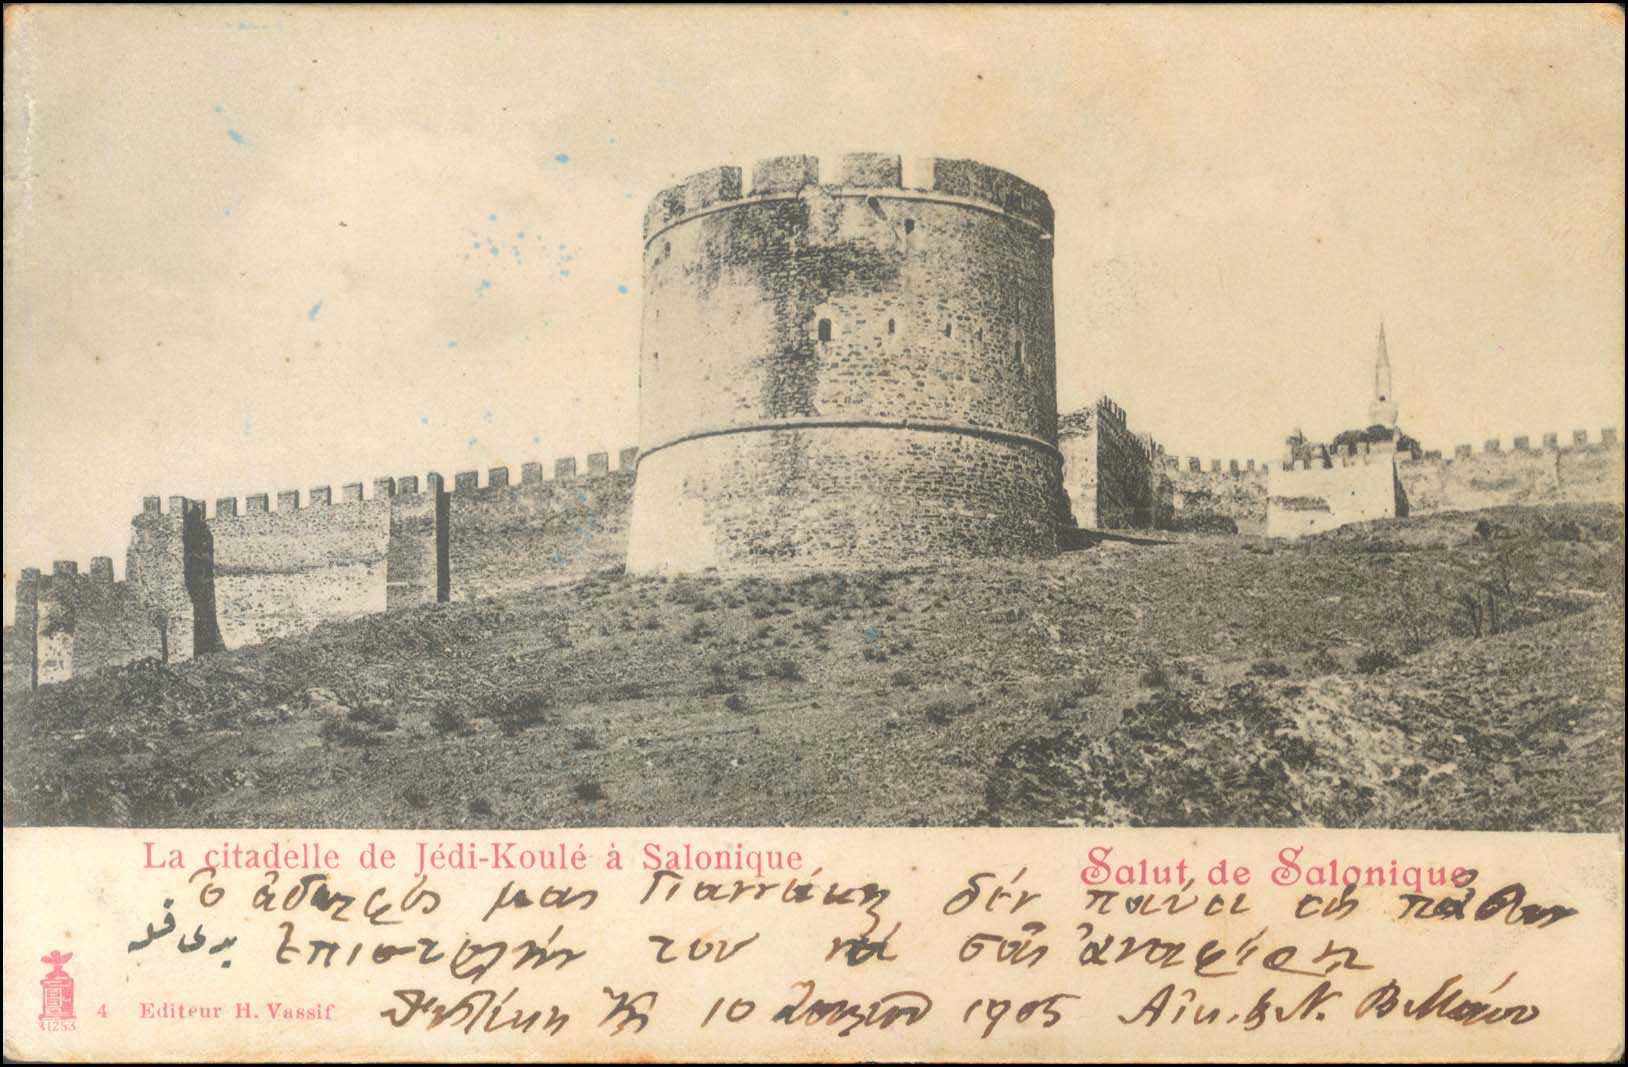 La citadelle de Jédi-Koulé à Salonique
Salut de Salonique
Ὁ ἀδερφός μας Γιαννάκης δέν παύει εἰς πᾶσαν
ἐπιστολήν του νά σᾶς ἀναφέρῃ
10 1905 Αἰκ. & Ν.
4 Editeur H. Vassif
41253